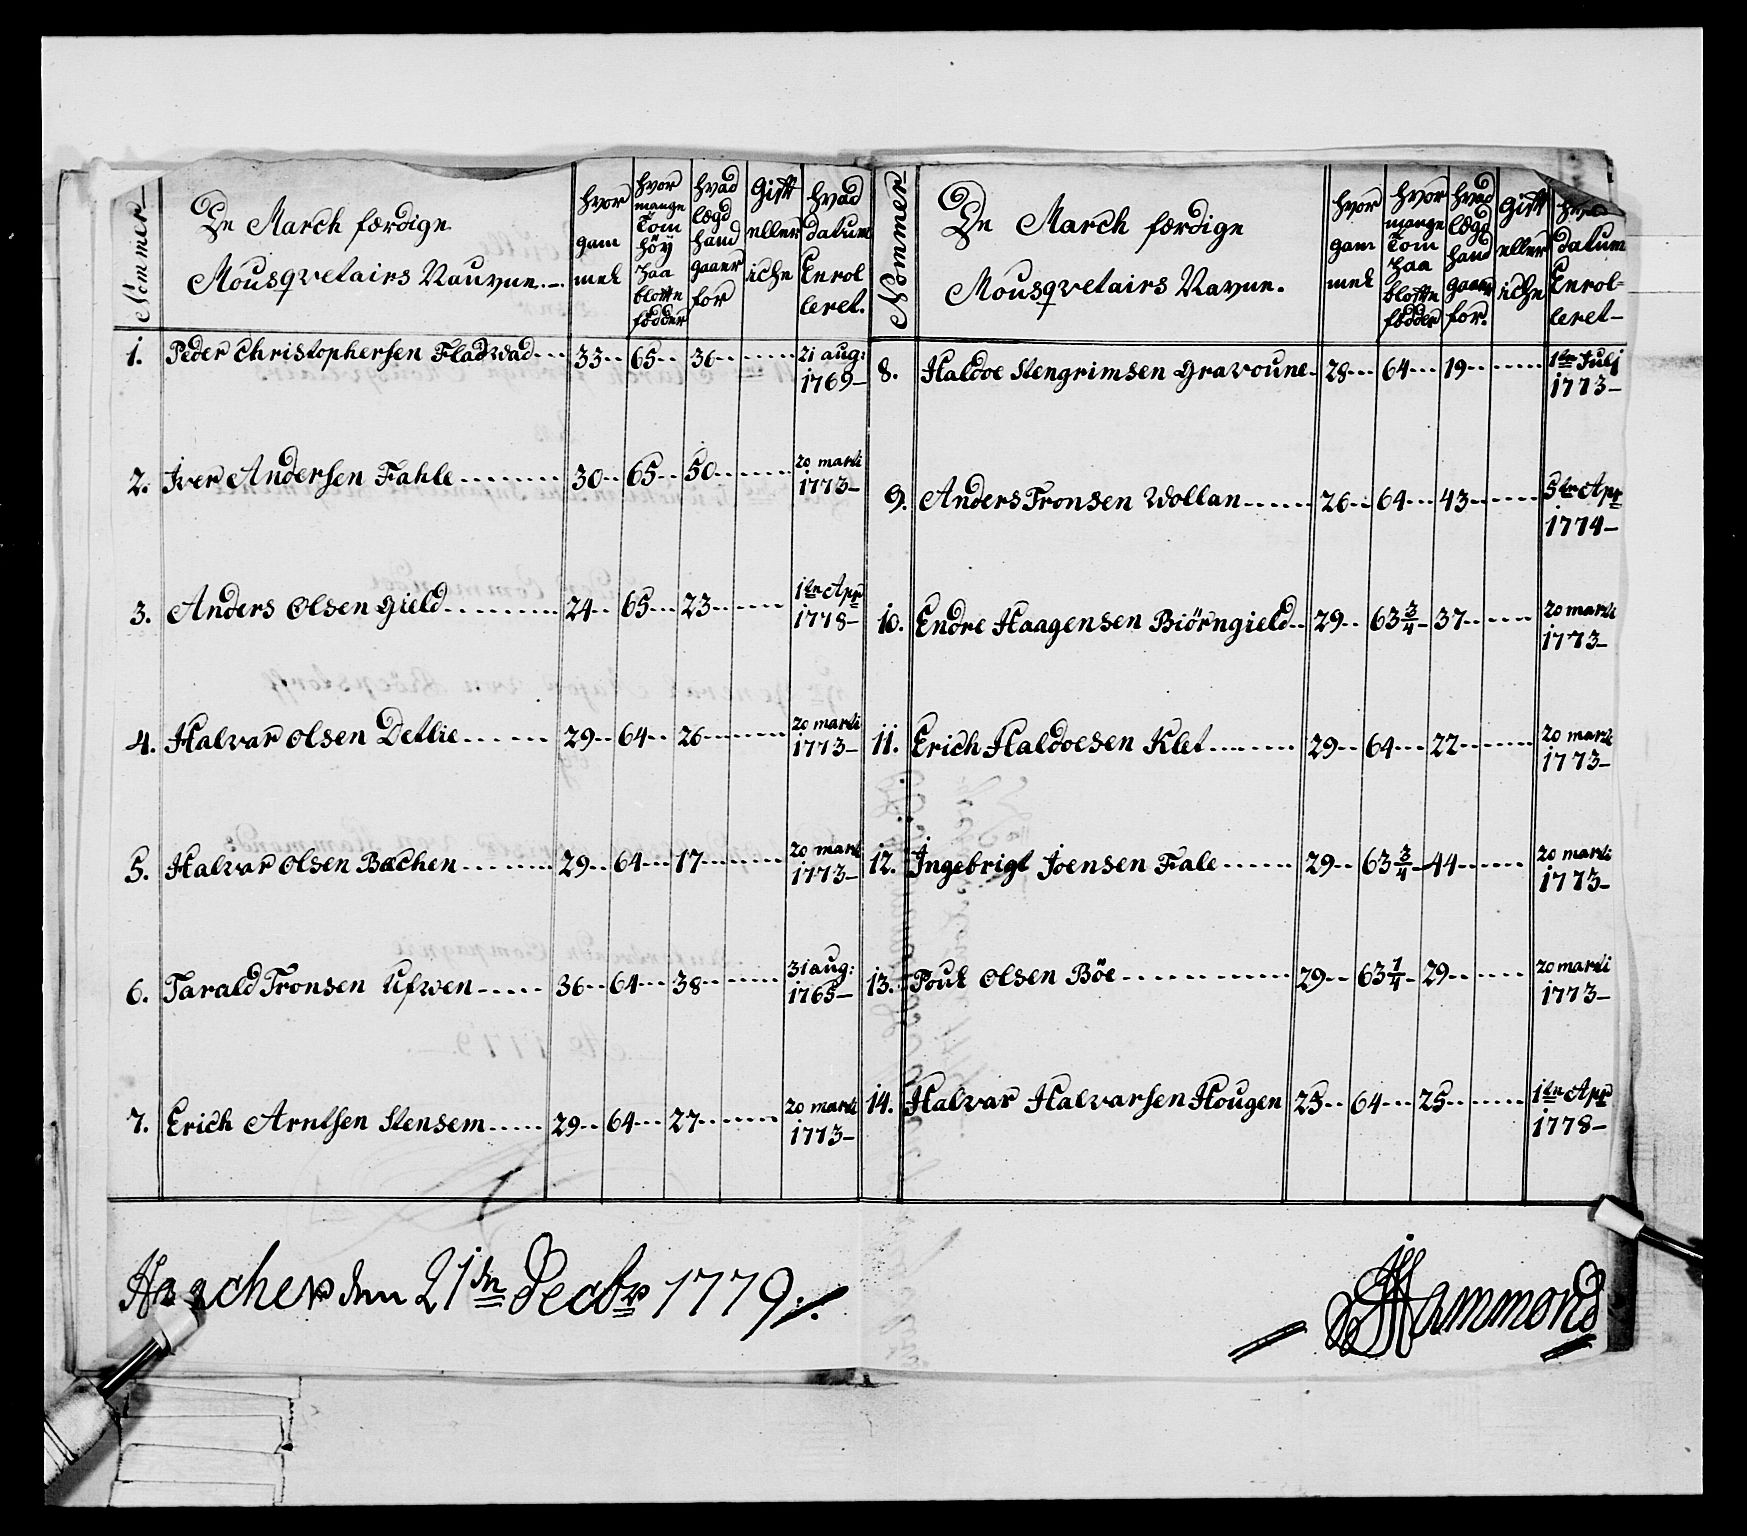 Nommer
De March færdige
Mousqvetairs Nauvne.
hvor
gam
mel
hvor
mange
Tom
höy
paa
blotte
födder
hvad
lægd
hand
gaaer
for
Gift
eller
iche
hvad
datum
Enrol
leret.
1. Peder Christophersen Fladwad 33 65 36 21 aug: 1769
2. Iver Andersen Fahle 30 65 50 20 marti 1773
3. Anders Olsen Gield 24 65 23 1te Apr 1778
4. Halvar Olsen Detlie 29 64 26 20 marti 1773
5. Halvar Olsen Bæchen 29 64 17 20 marti 1773
6. Tarald Tronsen Ufwen 36 64 38 31 aug: 1765
7. Erich Arntsen Stensem 29 64 27 20 marti 1773
Nommer
De March færdige
Mousqvetairs Navne.
hvor
gam
mel
hvor
mange
Tom
paa
blotte
födder
hvad
lægd
hand
gaaer
for.
Gift
eller
iche
datum
Enrol-
leret
8. Haldoe Stengrimsen Gravoune 28 64 19 1te Julj 1773
9. Anders Tronsen Wollan 26 64 43 5te Apr 1774
10. Endre Haagensen Biörngield 29 63 3/4 37 20 marti 1773
11. Erich Haldoesen Klet 29 64 22 20 marti 1773
12. Ingebrigt Joensen Fale 29 63 3/4 44 20 marti 1773
13. Poul Olsen Böe 29 63 1/4 29 20 marti 1773
14. Halvar Halvarsen Hougen 25 64 25 1te Apr 1778
den 21de Decbr 1779
Hammond